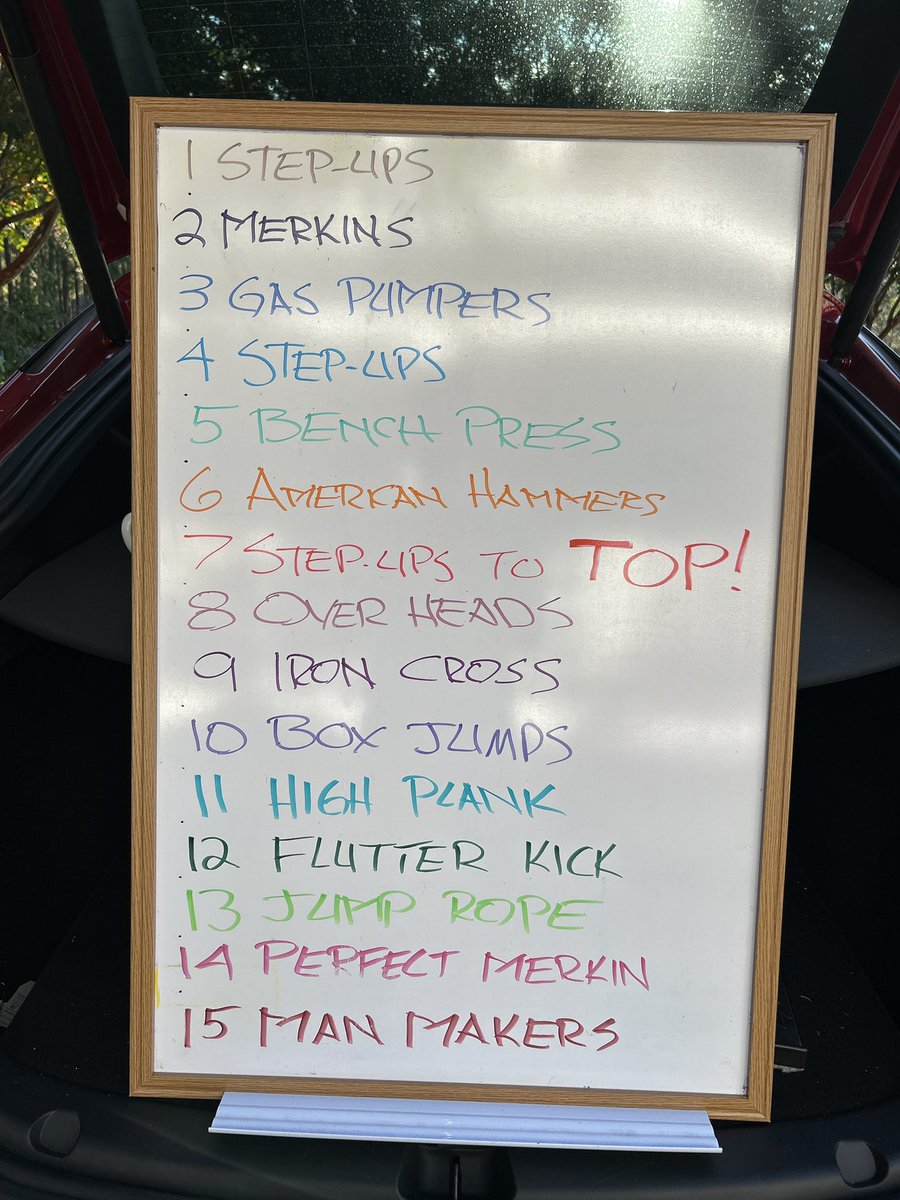 1 STEP-UPS
2 MERKINS
3 GAS PUMPERS
4 STEP-UPS
5 BENCH PRESS
6 AMERICAN HAMMERS
7 STEP-UPS TO TOP!
8 OVER HEADS
9 IRON CROSS
10 BOX JUMPS
11 HIGH PLANK
12 FLUTTER KICK
13 JUMP ROPE
14 PERFECT MERKIN
15 MAN MAKERS